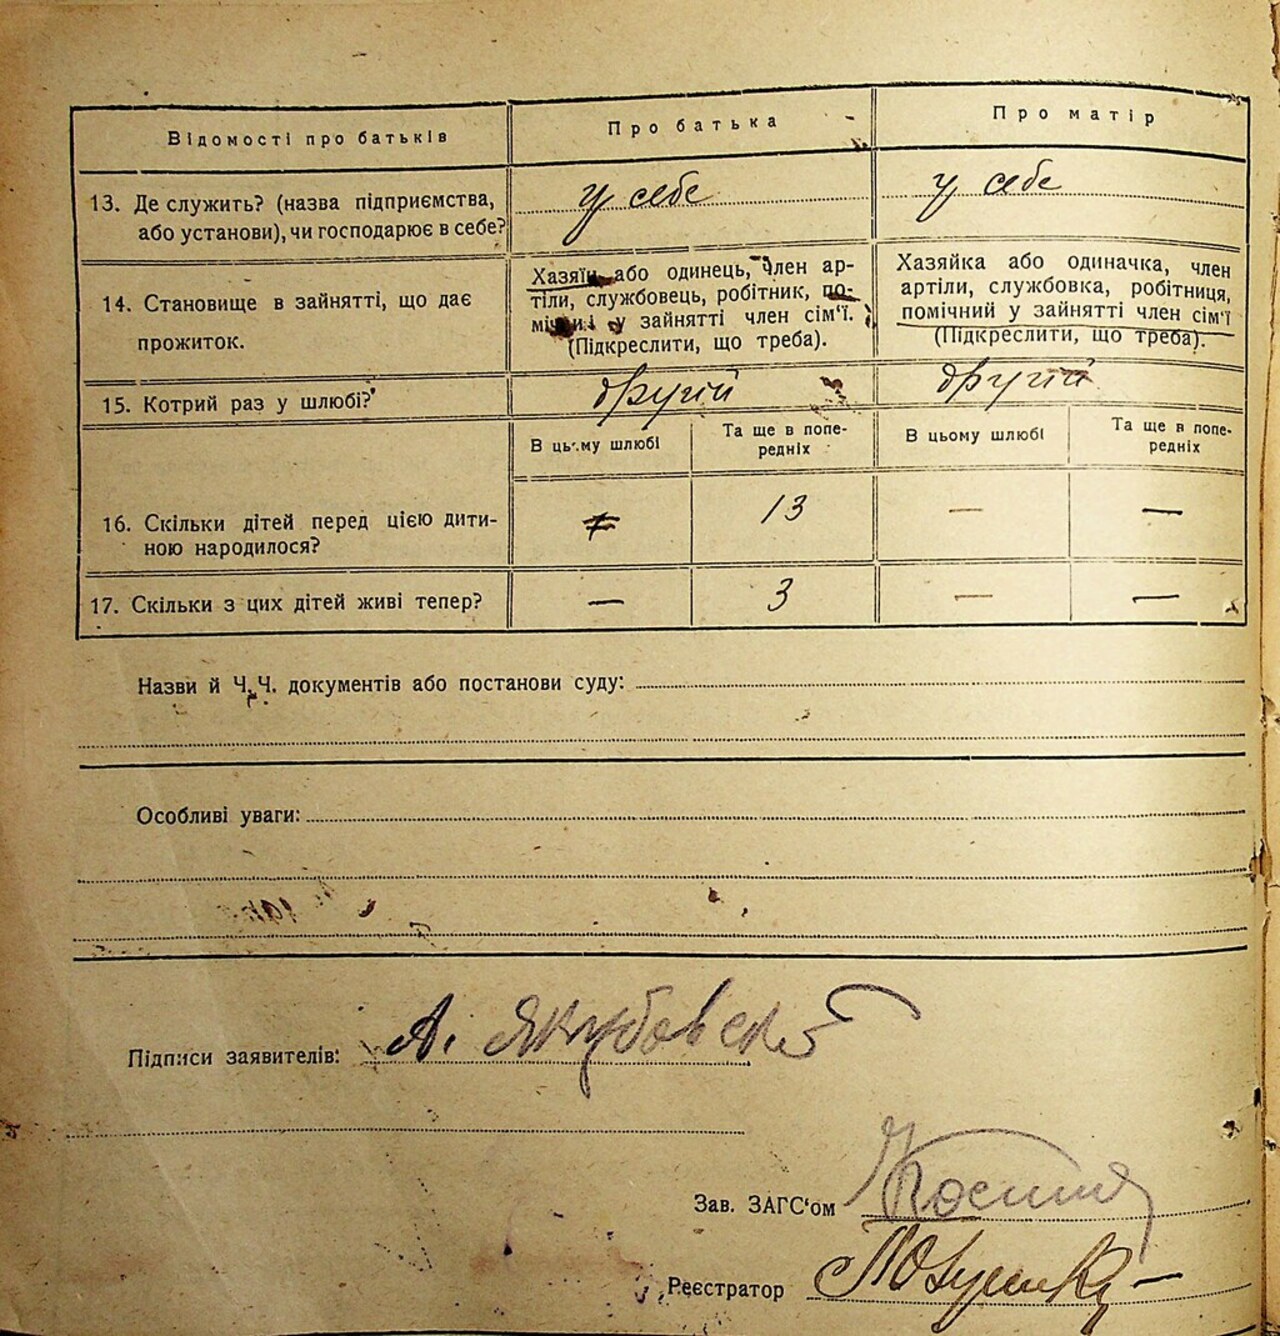 Відомості про батьків
Про батька
Про матір
13. Де служить? (назва підприємства,
або установи), чи господарює в себе?
у себе
у себе
14. Становище в зайнятті, що дає
прожиток.
Хазяїн або одинець, член ар-
тіли, службовець, робітник, по-
мічний у зайнятті член сім'ї.
(Підкреслити, що треба).
Хазяйка або одиначка, член
артіли, службовка, робітниця,
помічний у зайнятті член сім'ї
(Підкреслити, що треба).
15. Котрий раз у шлюбі?
другій
другій
В цьому шлюбі
Та ще в попе-
редніх
В цьому шлюбі
Та ще в попе-
редніх
16. Скільки дітей перед цією дити-
ною народилося?
13
—
—
17. Скільки з цих дітей живі тепер?
—
3
—
—
Назви й Ч.Ч. документів або постанови суду:
Особливі уваги:
Підписи заявителів:
А. Якубовский
Зав. ЗАГС'ом
Реєстратор